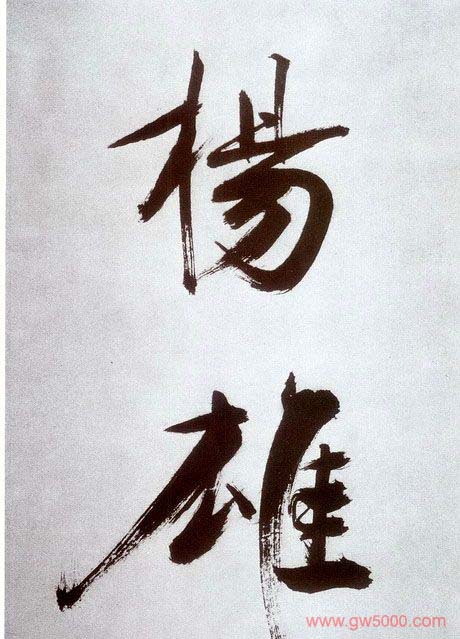 楊
雄
www.gw5000.com